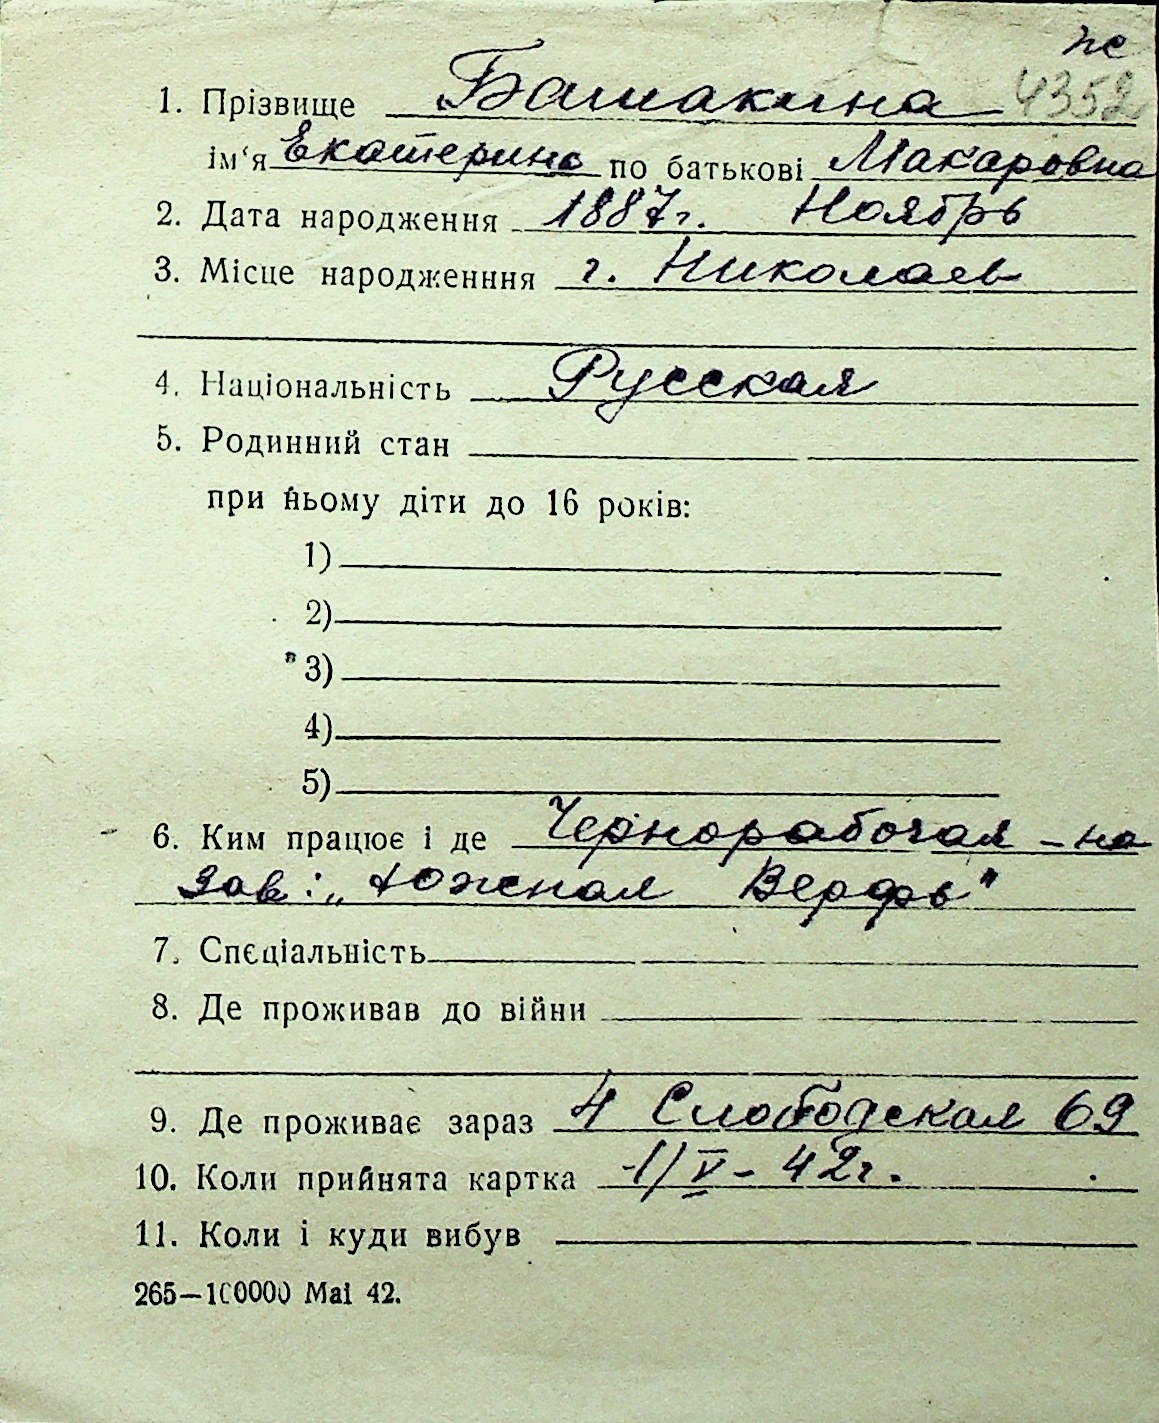 же
4352
1. Прізвище Башакина
ім‘я Екатерина по батькові Макаровна
2. Дата народження 1887г. Ноябрь
3. Місце народженння г. Николаев
4. Національність Русская
5. Родинний стан
при ньому діти до 16 років:
1)
2)
3)
4)
5)
6. Ким працює і де Чернорабочая - на
зав: „Южная Верфь"
7. Спєціальність
8. Де проживав до війни
9. Де проживає зараз 4 Слободская 69
10. Коли прийнята картка 1/V - 42г.
11. Коли і куди вибув
265—100000 Mai 42.